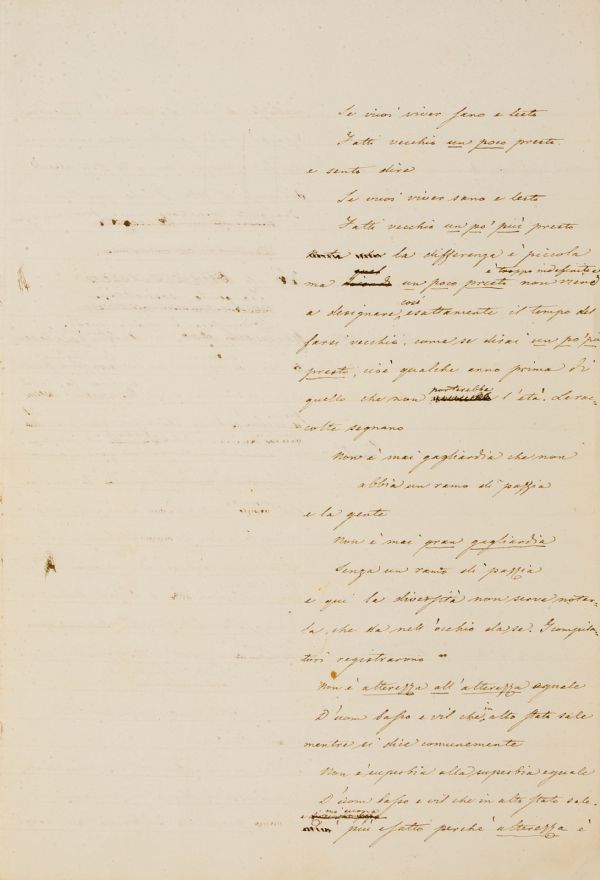 Se vuoi viver sano e lesto
Fatti vecchio un poco presto.
e sento dire
Se vuoi viver sano e lesto
Fatti vecchio un po' più presto
la differenza è piccola
quel è troppo indefinito e
ma un poco presto non viene
così
a designare, esattamente il tempo del
farsi vecchio, come se dirai un po' più
presto, cioè qualche anno prima di
porterebbe
quello che non l'età. Le rac-
colte segnano
Non è mai gagliardia che non
abbia un ramo di pazzia
e la gente
Non è mai gran gagliardia
Senza un ramo di pazzia
e qui la diversità non serve notar-
la, che da nell'occhio da se. I compila-
tori registrarono
Non è alterezza all'alterezza eguale
in
D'uom basso e vil che, alto stato sale
mentre si dice comunemente
Non è superbia alla superbia eguale
D'uom basso e vil che in alto stato sale.
e
è più esatto perchè alterezza è